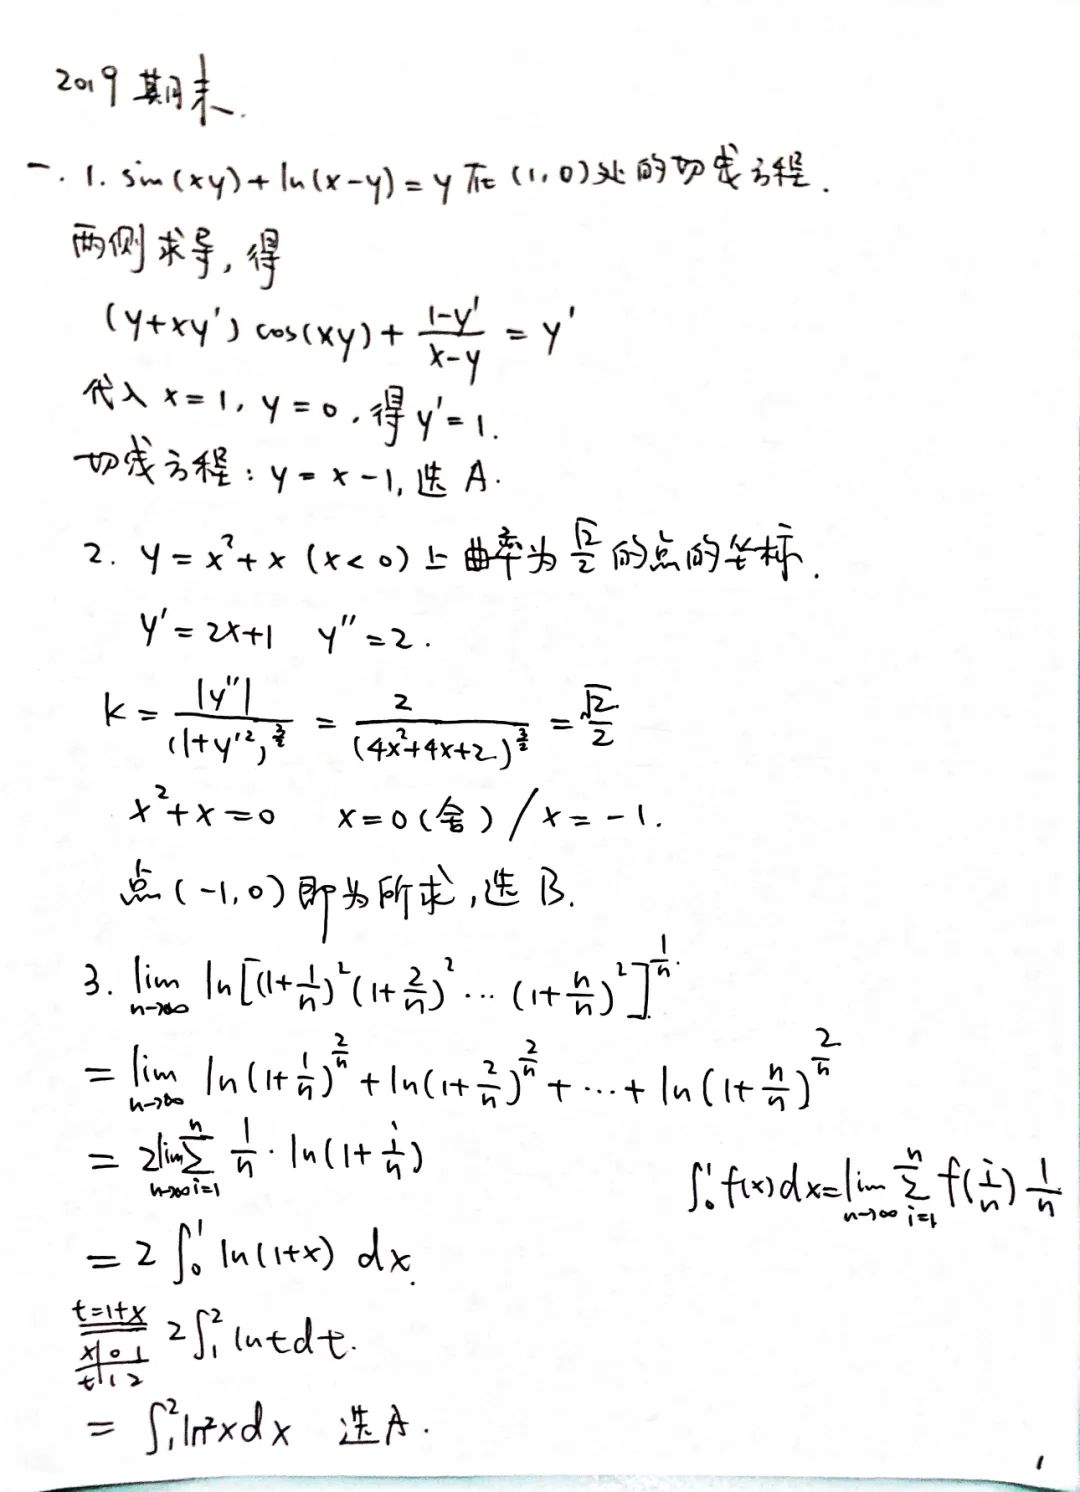 2019 期末.
一. 1. sin(xy)+ln(x-y)=y 在(1,0)处的切线方程.
两侧求导, 得
(y+xy')cos(xy)+\frac{1-y'}{x-y}=y'
代入 x=1, y=0, 得 y'=1.
切线方程: y=x-1, 选 A.
2. y=x²+x (x<0)上曲率为\frac{\sqrt{2}}{2}的点的坐标.
y'=2x+1 y''=2.
K=\frac{|y''|}{(1+y'^2)^{\frac{3}{2}}}=\frac{2}{(4x^2+4x+2)^{\frac{3}{2}}}=\frac{\sqrt{2}}{2}
x²+x=0 x=0(舍)/x=-1.
点(-1,0)即为所求, 选 B.
3. \lim_{n→∞} ln[(1+\frac{1}{n})^2(1+\frac{2}{n})^2…(1+\frac{n}{n})^2]^{\frac{1}{n}}.
=\lim_{n→∞} ln(1+\frac{1}{n})^{\frac{2}{n}}+ln(1+\frac{2}{n})^{\frac{2}{n}}+…+ln(1+\frac{n}{n})^{\frac{2}{n}}
=2\lim_{n→∞}\sum_{i=1}^{n}\frac{1}{n}·ln(1+\frac{i}{n})
∫_0^1 f(x)dx=\lim_{n→∞}\sum_{i=1}^{n}f(\frac{i}{n})\frac{1}{n}
=2∫_0^1 ln(1+x) dx.
t=1+x
x|0 1
t|1 2
2∫_1^2 lntdt.
=∫_1^2 ln²xdx 选A.
1